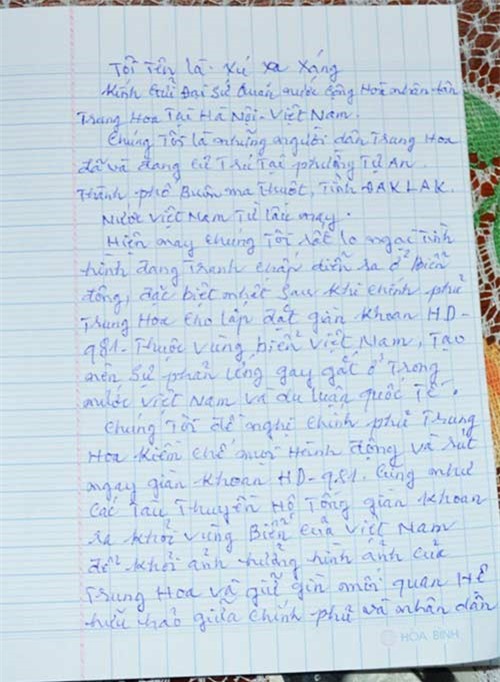 Tôi tên là: Xú Xa Xáng
Kính gửi Đại Sứ Quán nước cộng Hoà nhân dân
Trung Hoa Tại Hà Nội - Việt Nam.
Chúng Tôi là những người dân Trung Hoa
đã và đang cư Trú Tại phường Tự An.
Thành phố Buôn ma Thuột, Tỉnh ĐAKLAK.
Nước Việt Nam Từ lâu nay.
Hiện nay chúng Tôi rất lo ngại tình
hình đang Tranh chấp diễn ra ở biển
đông, đặc biệt nhất sau khi chính phủ
Trung Hoa cho lắp đặt giàn khoan HD-
981. Thuộc vùng biển Việt Nam, Tạo
nên sự phản ứng gay gắt ở Trong
nước Việt Nam và dư luận quốc Tế.
Chúng Tôi đề nghị chính phủ Trung
Hoa kiềm chế mọi Hành động và rút
ngay giàn khoan HD-981. Cũng như
các Tàu Thuyền Hộ Tống giàn khoan
ra khỏi vùng Biển của Việt Nam
để khỏi ảnh hưởng hình ảnh của
Trung Hoa và giữ gìn mối quan Hệ
hữu hảo giữa chính phủ và nhân dân
HÒA BÌNH